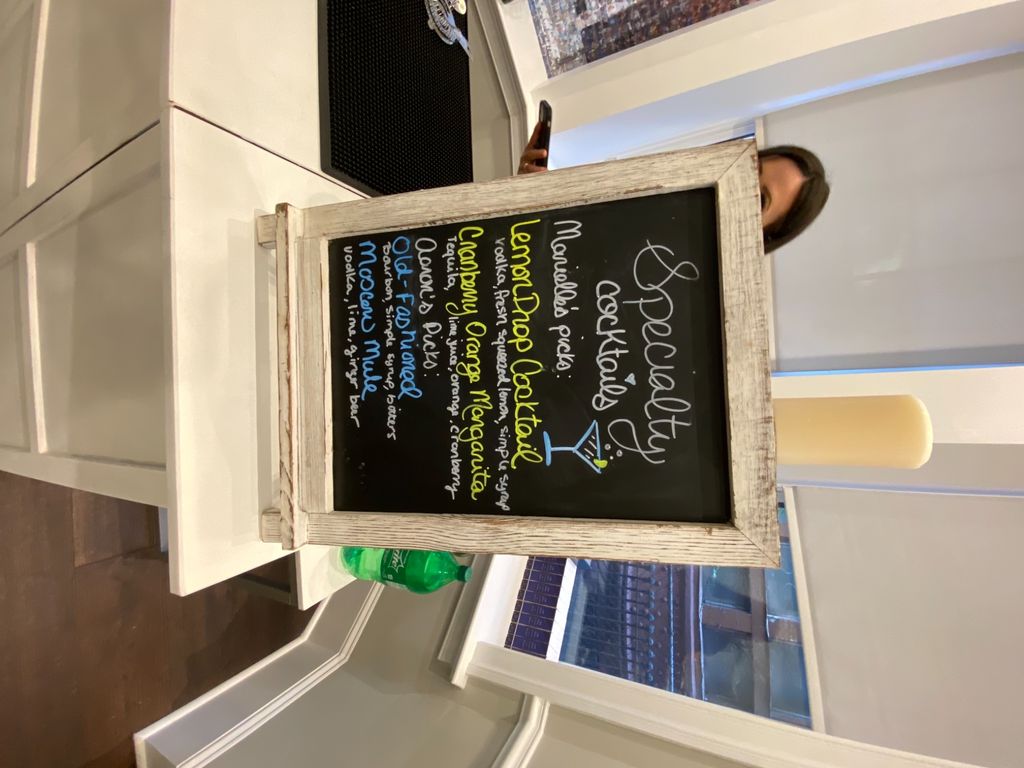 Specialty
cocktails
Marielle's picks:
Lemon Drop Cocktail
vodka, fresh squeezed lemon, simple syrup
Cranberry Orange Margarita
Tequila, lime juice, orange, cranberry
Aaron's Picks
Old-Fashioned
Bourbon, simple syrup, bitters
Moscow Mule
vodka, lime, ginger beer